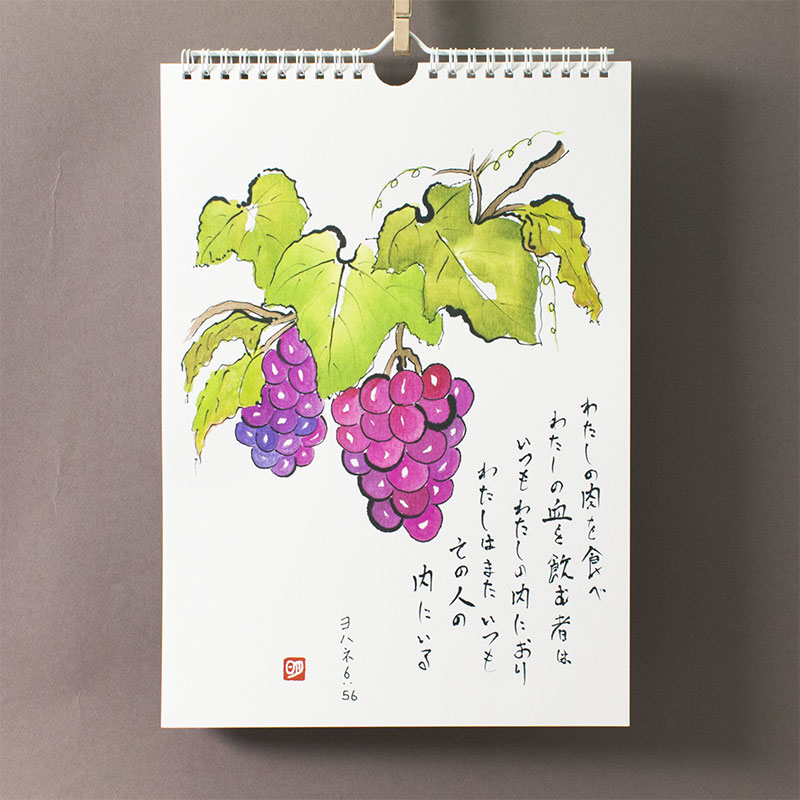 わたしの肉を食べ
わたしの血を飲む者は
いつもわたしの内におり
わたしはまたいつも
その人の
内にいる
ヨハネ6:56
明